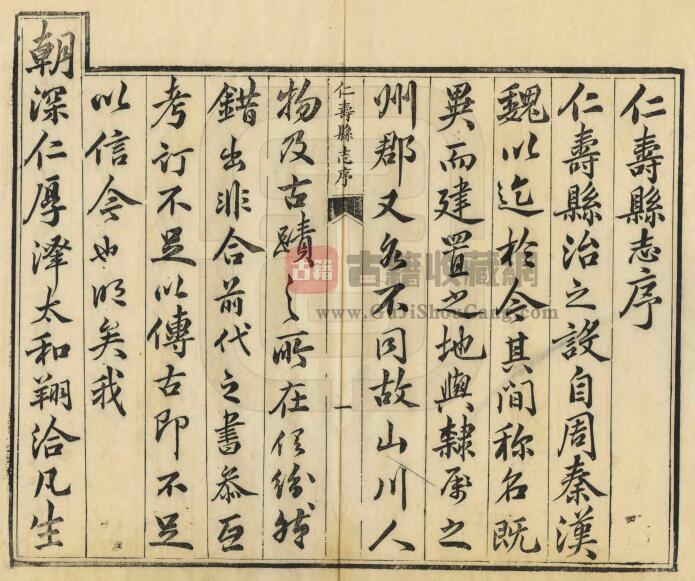 仁壽縣志序
仁壽縣治之設自周秦漢
魏以迄於今其間称名既
異而建置之地與隸属之
州郡又各不同故山川人
仁壽縣志序
一
物及古蹟之所在紛然
錯出非合前代之書叅互
考訂不足以傳古即不足
以信今也明矣我
朝深仁厚澤太和翔洽凡生
古籍
古籍收藏網
www.GuJiShouCang.com